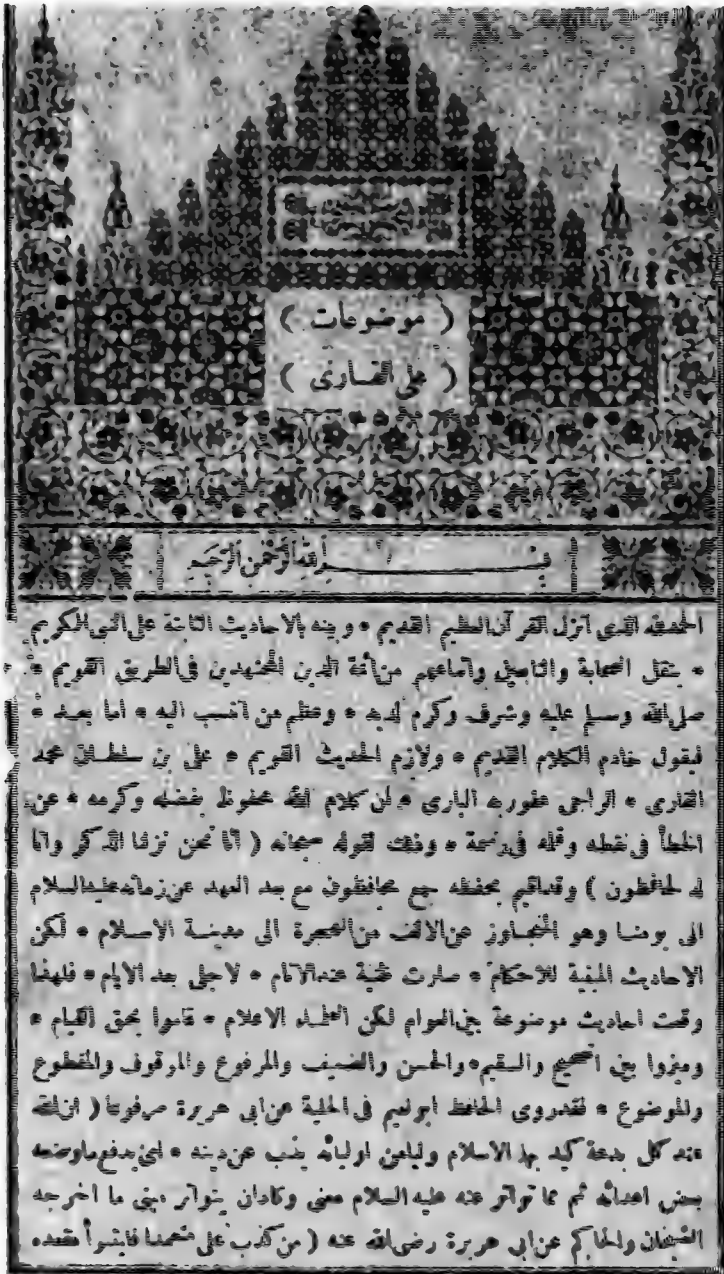 ( موضوعات )
( على القارى )
بسم الله الرحمن الرحيم
الحمدلله الذى انزل القرآن العظيم القديم * وبينه بالاحاديث الثابتة على النبى الكريم
* بنقل الصحابة والتابعين واتباعهم من ائمة الدين المجتهدين فى الطريق القويم *
صلى الله وسلم عليه وشرف وكرم لديه * وعظم من انتسب اليه * اما بعد *
فيقول خادم الكلام القديم * ولازم الحديث القويم * على بن سلطان محمد
القارى * الراجى عفو ربه البارى * ان كلام الله محفوظ بفضله وكرمه * عن
الخطأ فى نقطه وقله فى * وذلك لقوله سبحانه ( انا نحن نزلنا الذكر وانا
له لحافظون ) وقد اقيم بحفظه جمع محافظون مع بعد العهد عن زمانه عليه السلام
الى يومنا وهو المتجاوز عن الالف من الهجرة الى مدينة الاسلام * لكن
الاحاديث المبنية للاحكام * صارت ظنية عند الانام * لاجل بعد الايام * فلهذا
وقعت احاديث موضوعة بين العوام لكن العلماء الاعلام * قاموا بحق القيام *
وميزوا بين الصحيح والسقيم * والحسن والضعيف والمرفوع والموقوف والمقطوع
والموضوع * فقدروى الحافظ ابونعيم فى الحلية عن ابى هريرة مرفوعا ( ان لله
عند كل بدعة كيد بها الاسلام وليا من اوليائه يذب عن دينه * اى يدفع ما وضعه
بعض اعدائه ثم مما تواتر عنه عليه السلام معنى وكاد ان يتواتر مبنى ما اخرجه
الشيخان والحاكم عن ابى هريرة رضى الله عنه ( من كذب على متعمدا فليتبوأ مقعده